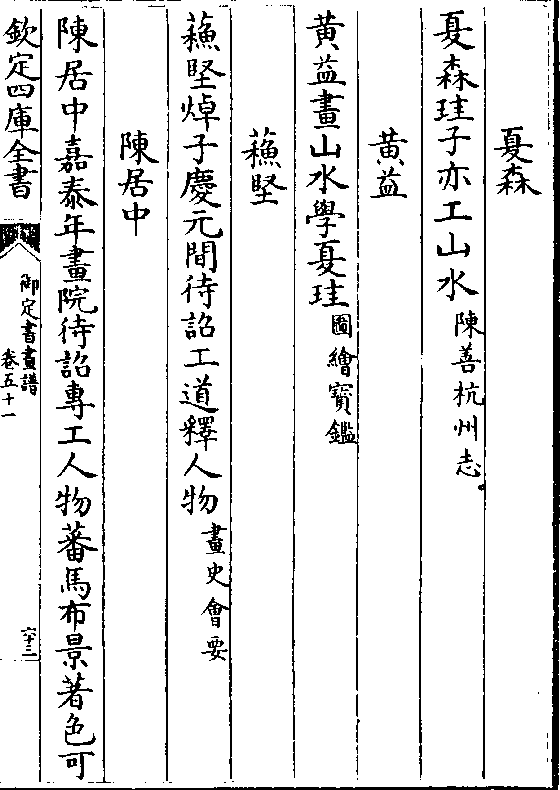 夏森
夏森珪子亦工山水陳善杭州志
黄益
黄益畫山水學夏珪圖繪寳鑑
蘓堅
蘓堅焯子慶元間待詔工道釋人物畫史會要
陳居中
陳居中嘉泰年畫院待詔專工人物蕃馬布景著色可
欽定四庫全書
御定書畫譜
卷五十一
六十三